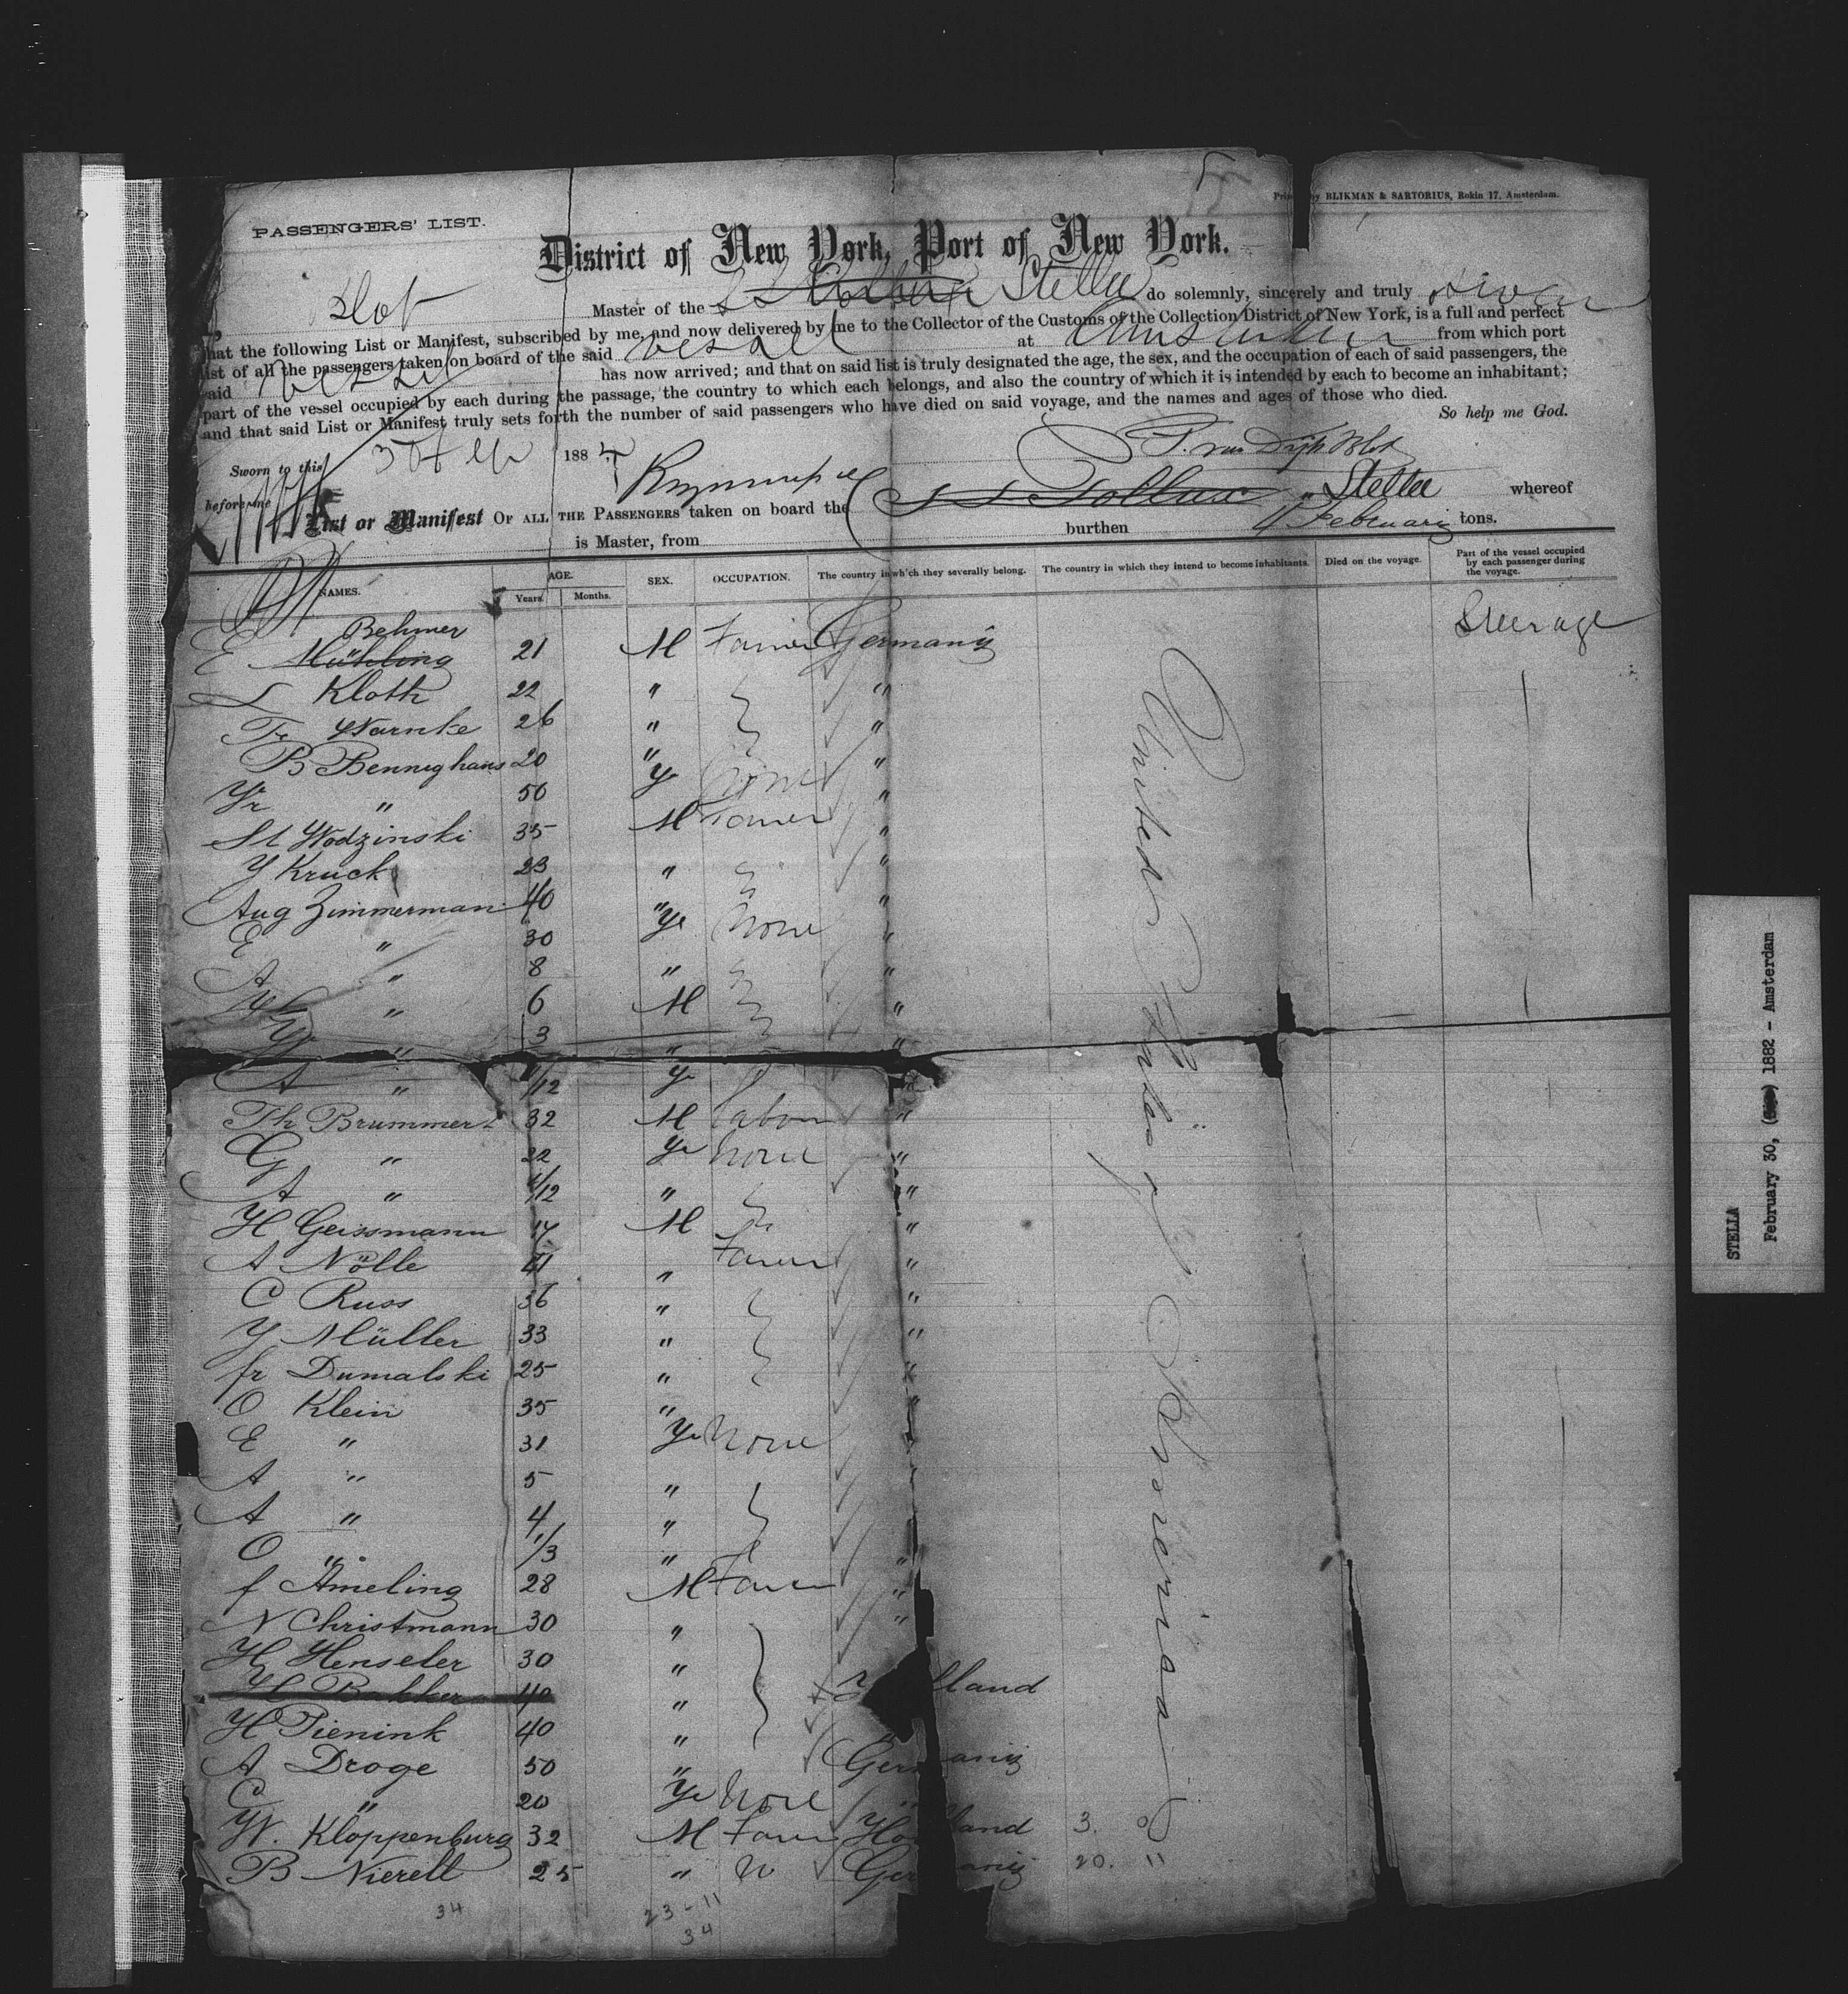 Printed by BLIKMAN & SARTORIUS, Rokin 17, Amsterdam.
PASSENGERS' LIST.
District of New York, Port of New York.
Master of the S S Stella do solemnly, sincerely and truly swear
that the following List or Manifest, subscribed by me, and now delivered by me to the Collector of the Customs of the Collection District of New York, is a full and perfect
list of all the passengers taken on board of the said vessel at Amsterdam from which port
said vessel has now arrived; and that on said list is truly designated the age, the sex, and the occupation of each of said passengers, the
part of the vessel occupied by each during the passage, the country to which each belongs, and also the country of which it is intended by each to become an inhabitant;
and that said List or Manifest truly sets forth the number of said passengers who have died on said voyage, and the names and ages of those who died.
So help me God.
Sworn to this 188
before me
List or Manifest OF ALL THE PASSENGERS taken on board the S S Pollux " Stella whereof
is Master, from burthen 4 February tons.
NAMES. AGE. Years. Months. SEX. OCCUPATION. The country in which they severally belong. The country in which they intend to become inhabitants. Died on the voyage. Part of the vessel occupied by each passenger during the voyage.
Behmer Steerage
E Mühling 21 M Farmer Germany
L Kloth 22 " "
Fr Warnke 26 " "
B Benneghaus 20 " "
Yr " 50 Ye None "
St Wodzinski 35 M Farmer "
Y Kruck 23 " "
Aug Zimmerman 40 " "
E " 30 Ye None "
A " 8 " "
" 6 M "
" 3 " "
A " /12 Ye "
Th Brummert 32 M labor "
G " 22 Ye None "
A " /12 " "
H Geissmann 17 M "
A Nölle 41 " Farmer "
C Russ 36 " "
Y Müller 33 " "
fr Dumalski 25 " "
O Klein 35 " "
E " 31 Ye None
A " 5 "
A " 4 "
O " 1/3 " "
f Ameling 28 M Farmer "
N Christmann 30 " "
H Henseler 30 "
H Bakker 40 " land
H Pienink 40 " "
A Droge 50 " Germany
C " 20 Ye None "
W. Kloppenburg 32 M Farmer Holland 3.
B Nierell 25 " N Germany 20. "
United States of America
34
23 - 11
34
STELLA
February 30, 1882 - Amsterdam